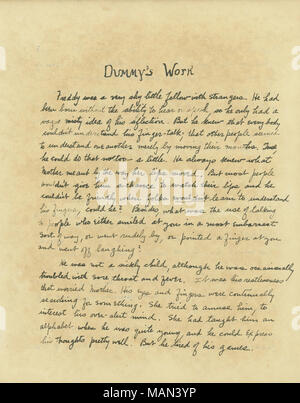 Dummy's Work
Freddy was a very shy little fellow with strangers. He had
been born without the ability to hear or speak, so he only had a
vague misty idea of his affliction. But he knew that everybody
couldn't understand his finger-talk; that other people seemed
to understand one another merely by moving their mouths.
he could do that too—a little. He always knew what
Mother meant by the way her lips moved. But most people
wouldn't give him a chance to watch their lips and he
couldn't be friends when folks wouldn't learn to understand
his fingers, could he? Besides what was the use of talking
to people who either smiled at you in a most embarrassed
sort of way, or went rudely by, or pointed a finger at you
and went off laughing!
He was not a sickly child, although he was occasionally
troubled with sore throat and fever. It was his restlessness
that worried Mother. His eyes and fingers were continually
searching for something. She tried to amuse him, to
interest his over-alert mind. She had taught him an
alphabet when he was quite young and he could express
his thoughts pretty well. But he tired of his games.
alamy
Image ID: MAN3YP
www.alamy.com